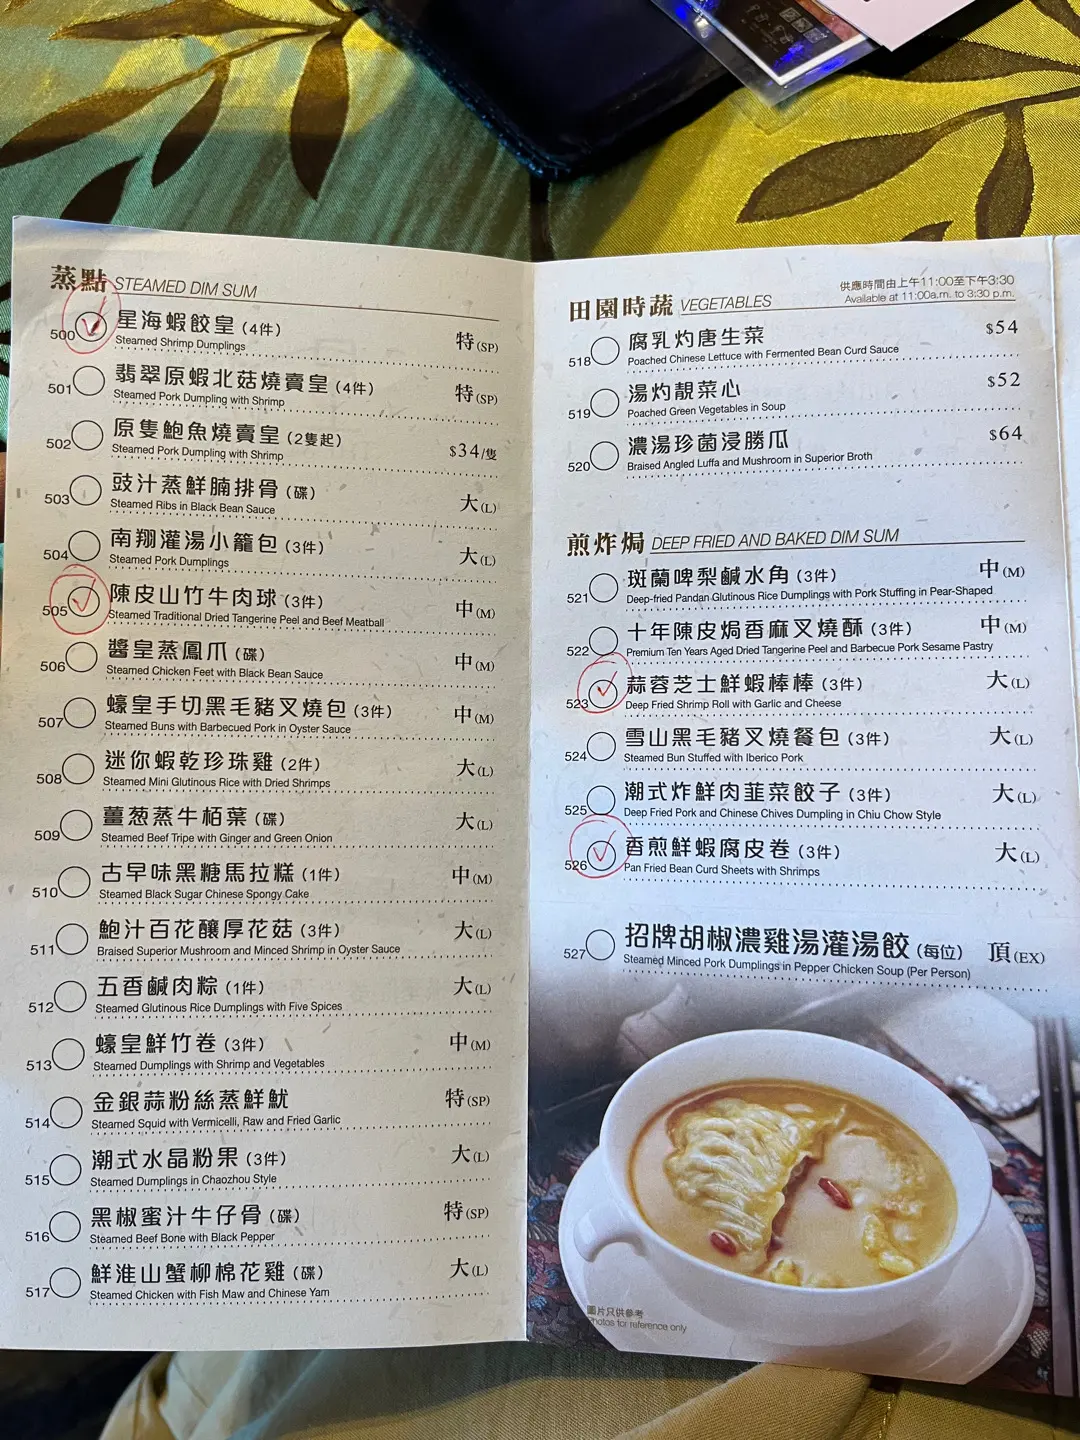 蒸點 STEAMED DIM SUM
500 星海蝦餃皇 (4件) 特(SP)
Steamed Shrimp Dumplings
501 翡翠原蝦北菇燒賣皇 (4件) 特(SP)
Steamed Pork Dumpling with Shrimp
502 原隻鮑魚燒賣皇 (2隻起) $34/隻
Steamed Pork Dumpling with Shrimp
503 豉汁蒸鮮腩排骨 (碟) 大(L)
Steamed Ribs in Black Bean Sauce
504 南翔灌湯小籠包 (3件) 大(L)
Steamed Pork Dumplings
505 陳皮山竹牛肉球 (3件) 中(M)
Steamed Traditional Dried Tangerine Peel and Beef Meatball
506 醬皇蒸鳳爪 (碟) 中(M)
Steamed Chicken Feet with Black Bean Sauce
507 蠔皇手切黑毛豬叉燒包 (3件) 中(M)
Steamed Buns with Barbecued Pork in Oyster Sauce
508 迷你蝦乾珍珠雞 (2件) 大(L)
Steamed Mini Glutinous Rice with Dried Shrimps
509 薑葱蒸牛栢葉 (碟) 大(L)
Steamed Beef Tripe with Ginger and Green Onion
510 古早味黑糖馬拉糕 (1件) 中(M)
Steamed Black Sugar Chinese Spongy Cake
511 鮑汁百花釀厚花菇 (3件) 大(L)
Braised Superior Mushroom and Minced Shrimp in Oyster Sauce
512 五香鹹肉粽 (1件) 大(L)
Steamed Glutinous Rice Dumplings with Five Spices
513 蠔皇鮮竹卷 (3件) 中(M)
Steamed Dumplings with Shrimp and Vegetables
514 金銀蒜粉絲蒸鮮魷 特(SP)
Steamed Squid with Vermicelli, Raw and Fried Garlic
515 潮式水晶粉果 (3件) 大(L)
Steamed Dumplings in Chaozhou Style
516 黑椒蜜汁牛仔骨 (碟) 特(SP)
Steamed Beef Bone with Black Pepper
517 鮮淮山蟹柳棉花雞 (碟) 大(L)
Steamed Chicken with Fish Maw and Chinese Yam
田園時蔬 VEGETABLES
供應時間由上午11:00至下午3:30
Available at 11:00a.m. to 3:30 p.m.
518 腐乳灼唐生菜 $54
Poached Chinese Lettuce with Fermented Bean Curd Sauce
519 湯灼靚菜心 $52
Poached Green Vegetables in Soup
520 濃湯珍菌浸勝瓜 $64
Braised Angled Luffa and Mushroom in Superior Broth
煎炸焗 DEEP FRIED AND BAKED DIM SUM
521 斑蘭啤梨鹹水角 (3件) 中(M)
Deep-fried Pandan Glutinous Rice Dumplings with Pork Stuffing in Pear-Shaped
522 十年陳皮焗香麻叉燒酥 (3件) 中(M)
Premium Ten Years Aged Dried Tangerine Peel and Barbecue Pork Sesame Pastry
523 蒜蓉芝士鮮蝦棒棒 (3件) 大(L)
Deep Fried Shrimp Roll with Garlic and Cheese
524 雪山黑毛豬叉燒餐包 (3件) 大(L)
Steamed Bun Stuffed with Iberico Pork
525 潮式炸鮮肉韮菜餃子 (3件) 大(L)
Deep Fried Pork and Chinese Chives Dumpling in Chiu Chow Style
526 香煎鮮蝦腐皮卷 (3件) 大(L)
Pan Fried Bean Curd Sheets with Shrimps
527 招牌胡椒濃雞湯灌湯餃 (每位) 頂(EX)
Steamed Minced Pork Dumplings in Pepper Chicken Soup (Per Person)
圖片只供參考
Photos for reference only